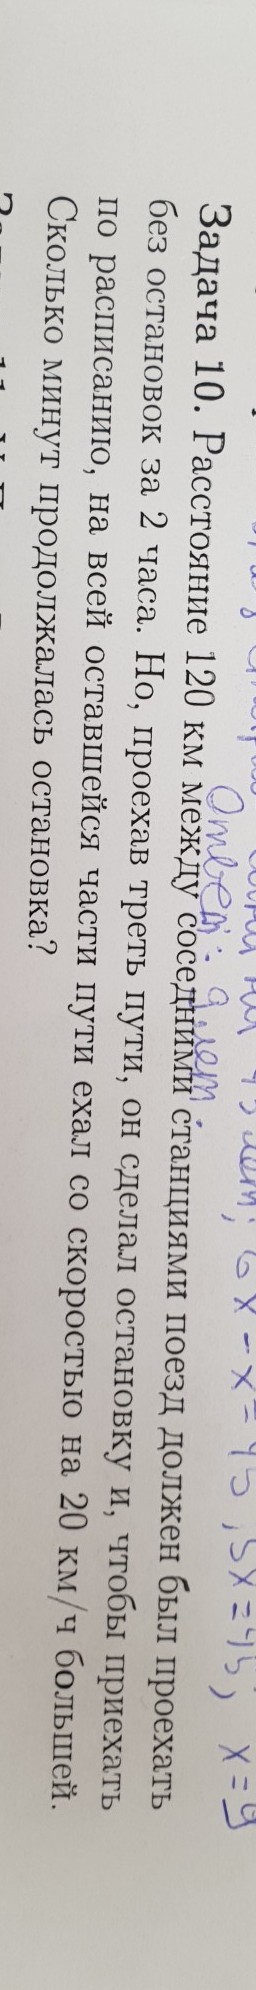 6x - x = 45, 5x = 45, x = 9
Ответ: 9 лет.
Задача 10. Расстояние 120 км между соседними станциями поезд должен был проехать
без остановок за 2 часа. Но, проехав треть пути, он сделал остановку и, чтобы приехать
по расписанию, на всей оставшейся части пути ехал со скоростью на 20 км/ч большей.
Сколько минут продолжалась остановка?